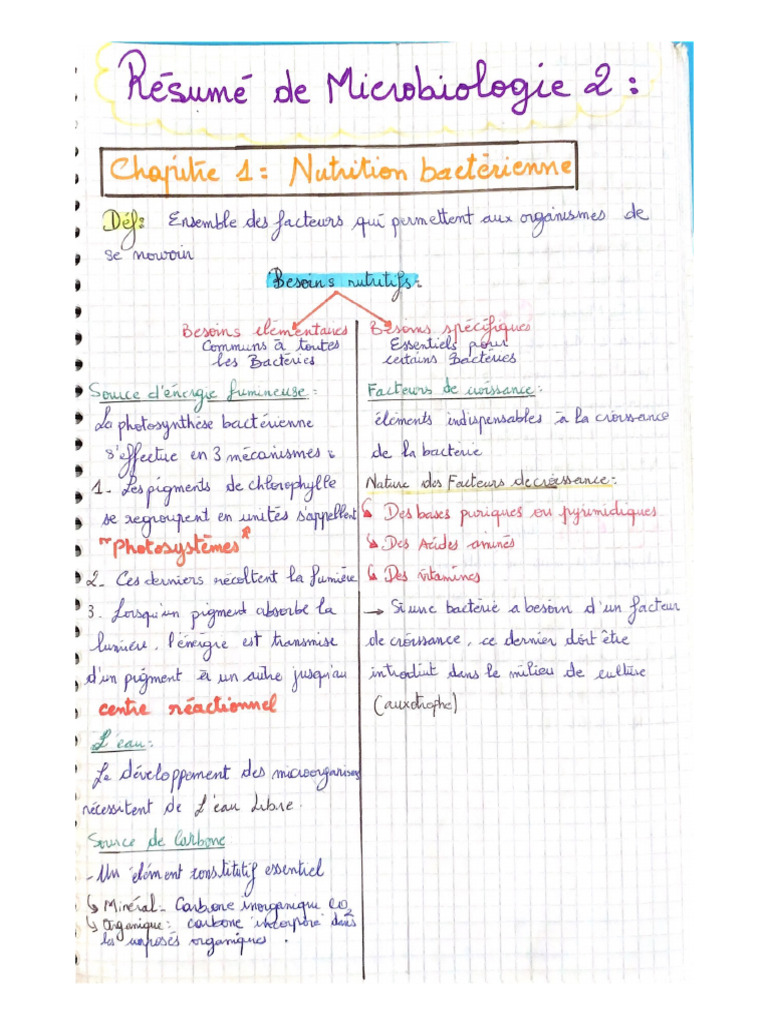 Résumé de Microbiologie 2 :
Chapitre 1 : Nutrition bactérienne
Déf : Ensemble des facteurs qui permettent aux organismes de
se nourrir
Besoins nutritifs :
Besoins élémentaires
Communs à toutes
les Bactéries
Source d'énergie lumineuse :
La photosynthèse bactérienne
s'effectue en 3 mécanismes :
1 - Les pigments de chlorophylle
se regroupent en unités s'appellent
"Photosystèmes"
2 - Ces derniers récoltent la lumière
3. Lorsqu'un pigment absorbe la
lumière, l'énergie est transmise
d'un pigment à un autre jusqu'au
centre réactionnel
L'eau :
Le développement des microorganismes
nécessitent de l'eau libre.
Source de Carbone
- Un élément constitutif essentiel
↳ Minéral - Carbone inorganique CO2
↳ Organique : carbone incorporé dans
les composés organiques .
Besoins spécifiques
Essentiels pour
certains Bactéries
Facteurs de croissance :
éléments indispensables à la croissance
de la bactérie
Nature des Facteurs de croissance :
↳ Des bases puriques ou pyrimidiques
↳ Des Acides aminés
↳ Des vitamines
→ Si une bactérie a besoin d'un facteur
de croissance, ce dernier doit être
introduit dans le milieu de culture
(auxotrophe)